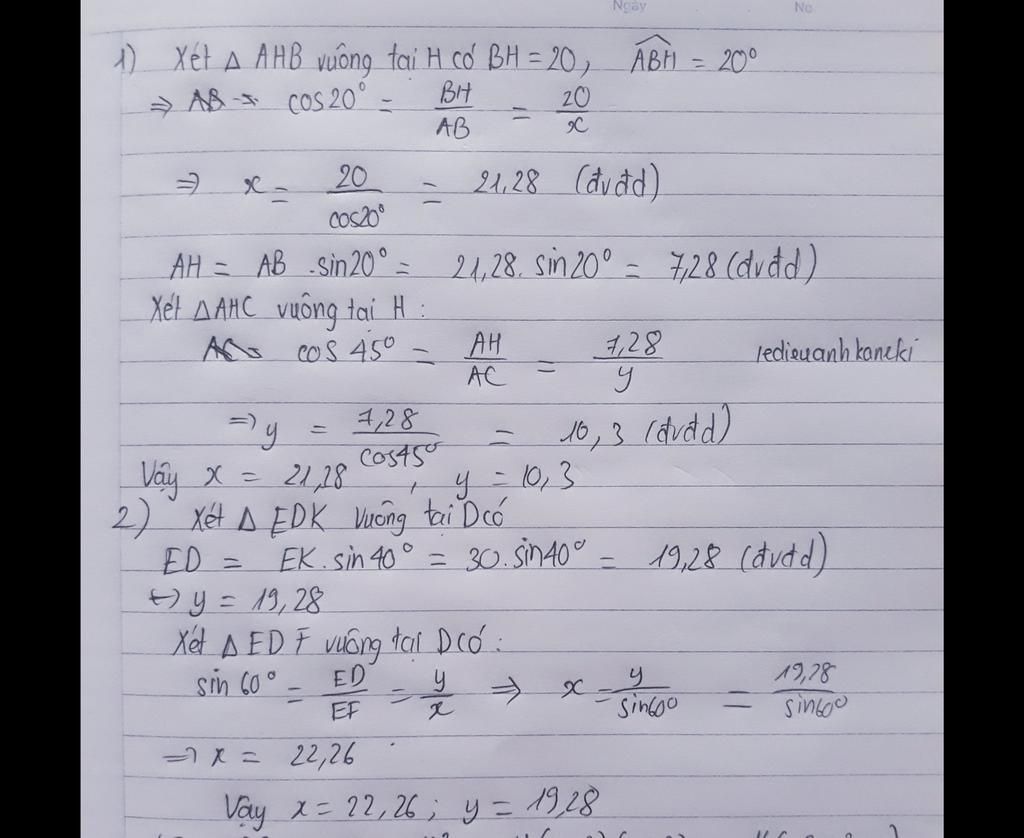 Ngày No.
1) Xét Δ AHB vuông tại H có BH = 20, ABH = 20°
=> cos20° = BH/AB = 20/x
=> x = 20/cos20° = 21,28 (đvđd)
AH = AB .sin20° = 21,28. sin20° = 7,28 (đvđd)
Xét ΔAHC vuông tại H :
cos 45° = AH/AC = 7,28/y ledieuanhkaneki
=> y = 7,28/cos45° = 10,3 (đvđd)
Vậy x = 21,28 , y = 10,3
2) Xét Δ EDK vuông tại D có
ED = EK. sin 40° = 30. sin40° = 19,28 (đvđd)
<-> y = 19,28
Xét Δ EDF vuông tại D có :
sin 60° = ED/EF = y/x => x = y/sin60° = 19,28/sin60°
=> x = 22,26
Vậy x = 22,26 ; y = 19,28